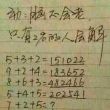 只有2%的人会解
5+3+2=151022
9+2+4=183652
8+6+3=482466
5+4+5=202541
7+2+5=?